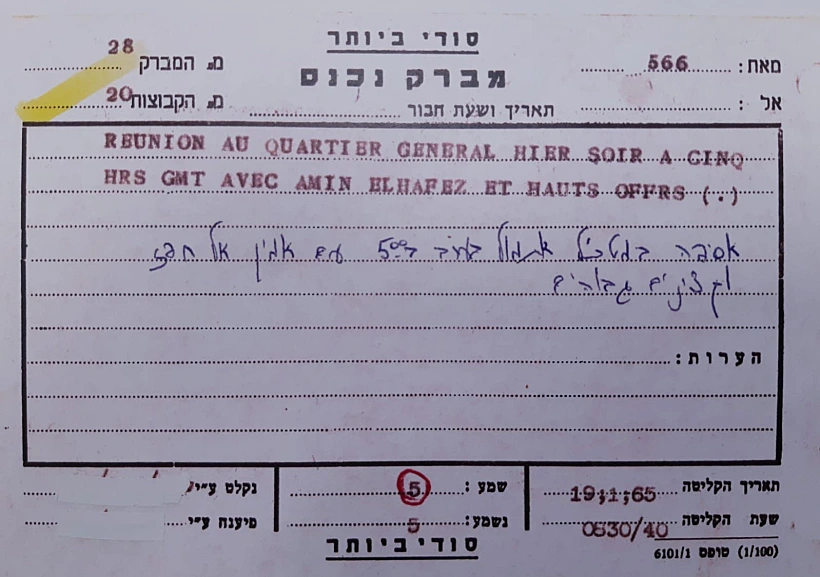 סודי ביותר
מברק נכנס
מאת: 566
אל :
תאריך ושעת חבור
מס. המברק 28
מס. הקבוצות 20
REUNION AU QUARTIER GENERAL HIER SOIR A CINQ
HRS GMT AVEC AMIN ELHAFEZ ET HAUTS OFFRS (.)
אסיפה במטכ"ל אתמול בערב ב 5⁰⁰ עם אמין אל חפז
וקצינים גבוהים
הערות:
תאריך הקליטה 19;1;65
שעת הקליטה 0830/40
שמע: 5
נשמע: 5
נקלט ע"י
פיענח ע"י
סודי ביותר
(1/100) טופס 6101/1